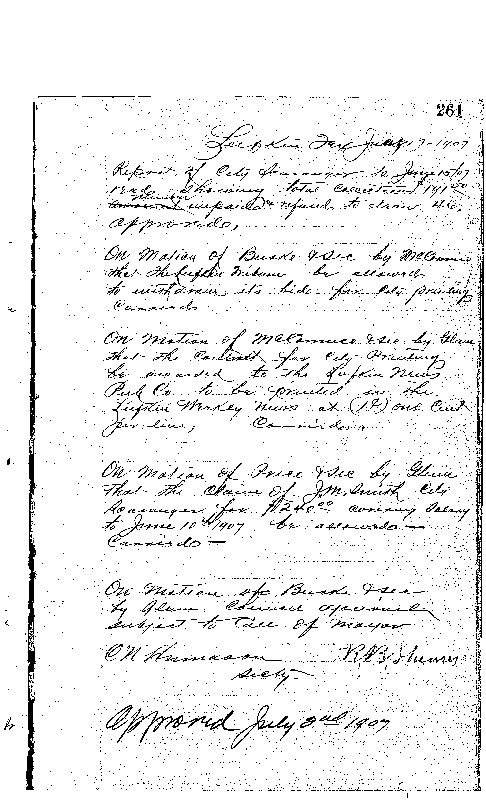 261
Lufkin Tex July 17-1907
Report of City Scavenger to June 15/07
read, showing total collections 191.00
number unpaid & refused to draw 46.
approved,
On Motion of Burke & Sec by McConnico
that The Lufkin Tribune be allowed
to withdraw its bid for City printing
Carried
On Motion of McConnico & Sec by Glenn
that the Contract for City Printing
be awarded to the Lufkin News
Pub Co. to be printed in the
Lufkin Weekly News at (1¢) one Cent
per line, Carried.
On Motion of Price & Sec by Glenn
that the claim of J.M. Smith City
Scavenger for $240.00 covering salary
to June 10th 1907 be allowed —
Carried —
On Motion of Burke & Sec
by Glenn Council adjourned
subject to Call of Mayor
C N Humason
Secty
Approved July 2nd 1907